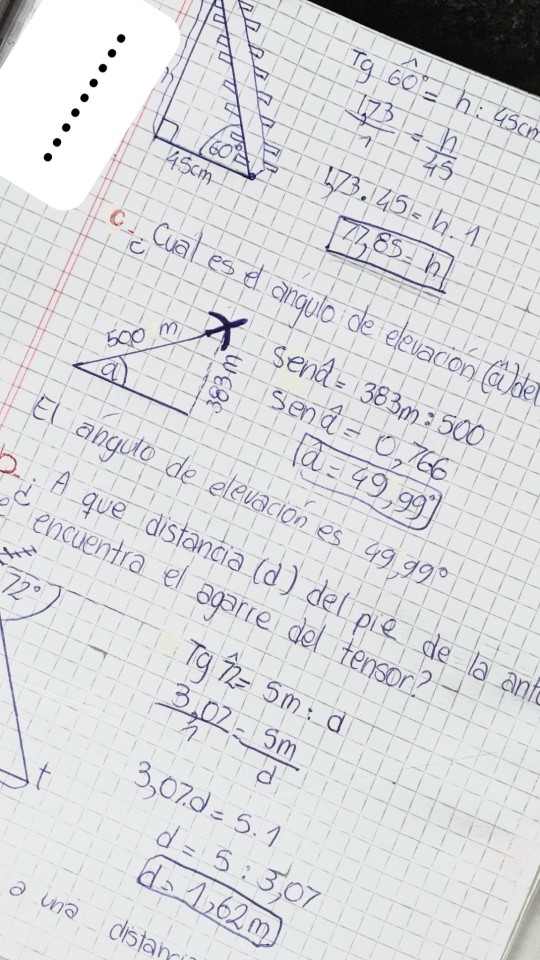 Tg 60° = h : 45cm
1,73 / 1 = h / 45
1,73 . 45 = h . 1
77,85 = h
60°
45cm
c-
¿Cual es el ángulo de elevación (â) del
500 m
a
383m
Sen â = 383m : 500
Sen â = 0,766
â = 49,99°
El ángulo de elevación es 49,99°
D.
¿A que distancia (d) del pie de la ante
encuentra el agarre del tensor?
72°
t
Tg 72 = 5m : d
3,07 / 1 = 5m / d
3,07.d = 5.1
d = 5 : 3,07
d = 1,62m
a una distanci